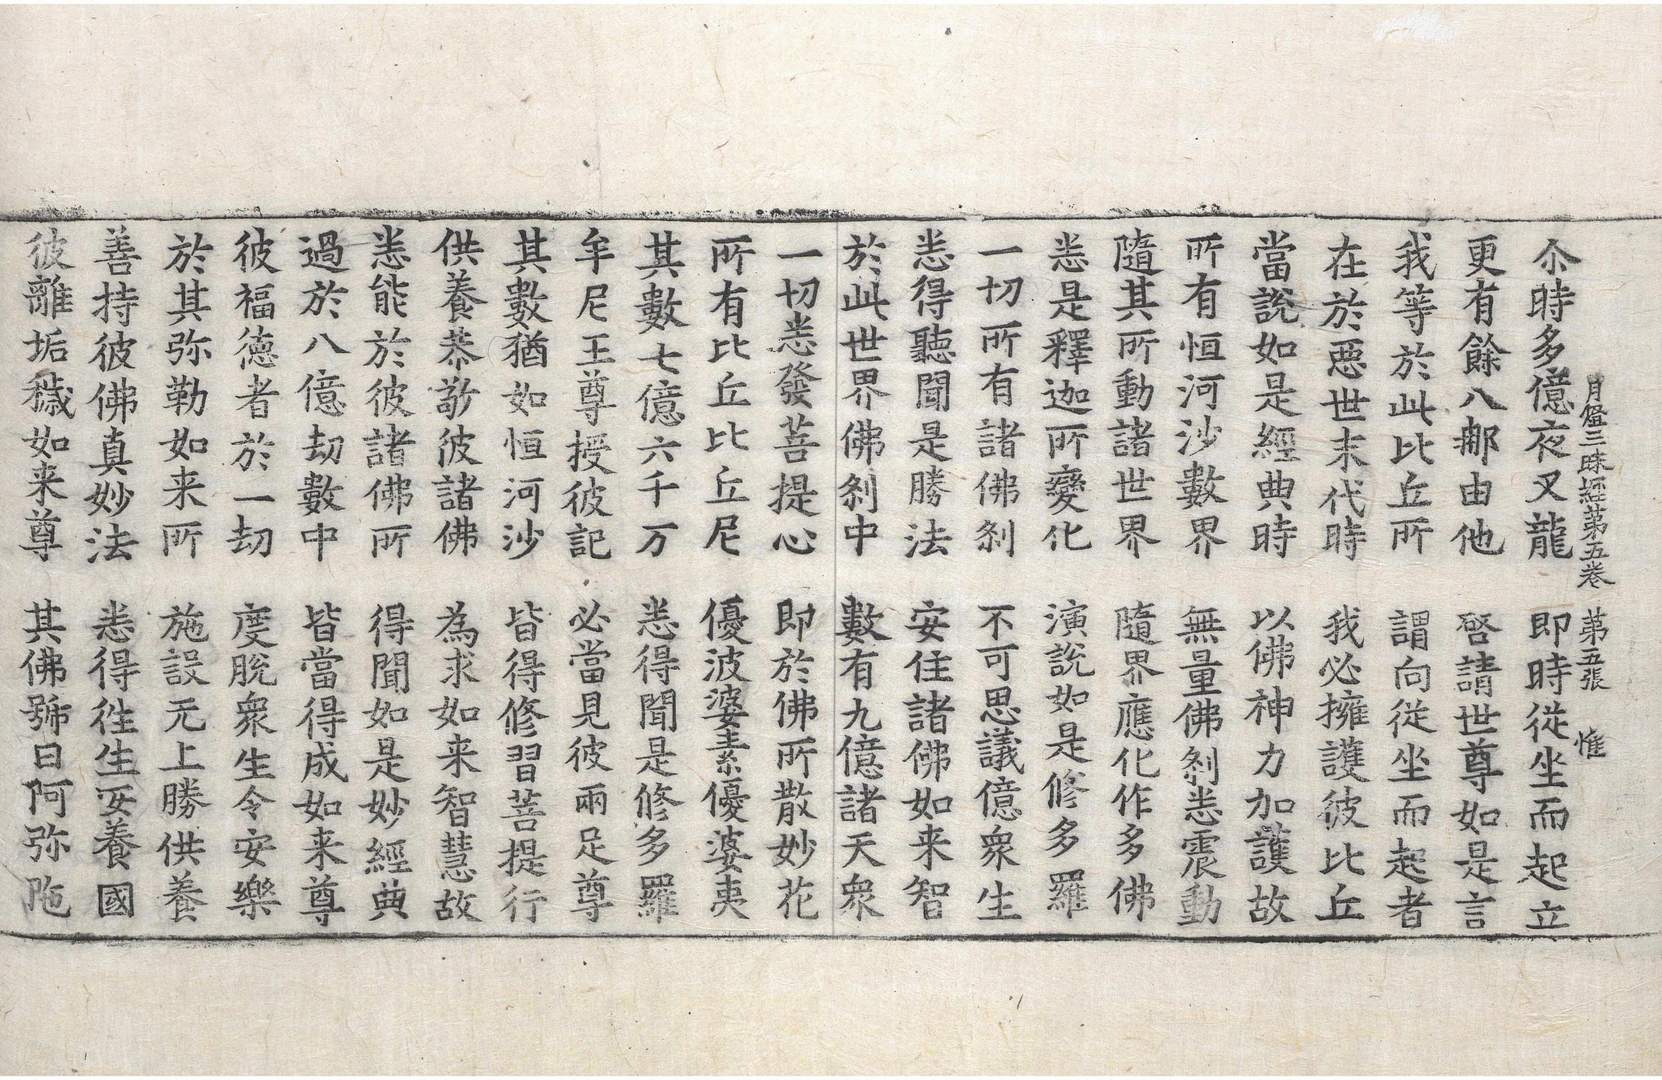 月燈三昧經第五卷 第五張 惟
尒時多億夜叉龍 即時從坐而起立
更有餘八那由他 啓請世尊如是言
我等於此比丘所 謂向從坐而起者
在於惡世末代時 我必擁護彼比丘
當說如是經典時 以佛神力加護故
所有恒河沙數界 無量佛刹悉震動
隨其所動諸世界 隨界應化作多佛
悉是釋迦所變化 演說如是修多羅
一切所有諸佛刹 不可思議億衆生
悉得聽聞是勝法 安住諸佛如来智
於此世界佛刹中 數有九億諸天衆
一切悉發菩提心 即於佛所散妙花
所有比丘比丘尼 優波婆素優婆夷
其數七億六千万 悉得聞是修多羅
牟尼王尊授彼記 必當見彼兩足尊
其數猶如恒河沙 皆得修習菩提行
供養恭敬彼諸佛 為求如来智慧故
悉能於彼諸佛所 得聞如是妙經典
過於八億劫數中 皆當得成如来尊
彼福德者於一劫 度脫衆生令安樂
於其弥勒如来所 施設无上勝供養
善持彼佛真妙法 悉得徃生安養國
彼離垢穢如来尊 其佛號曰阿弥陁